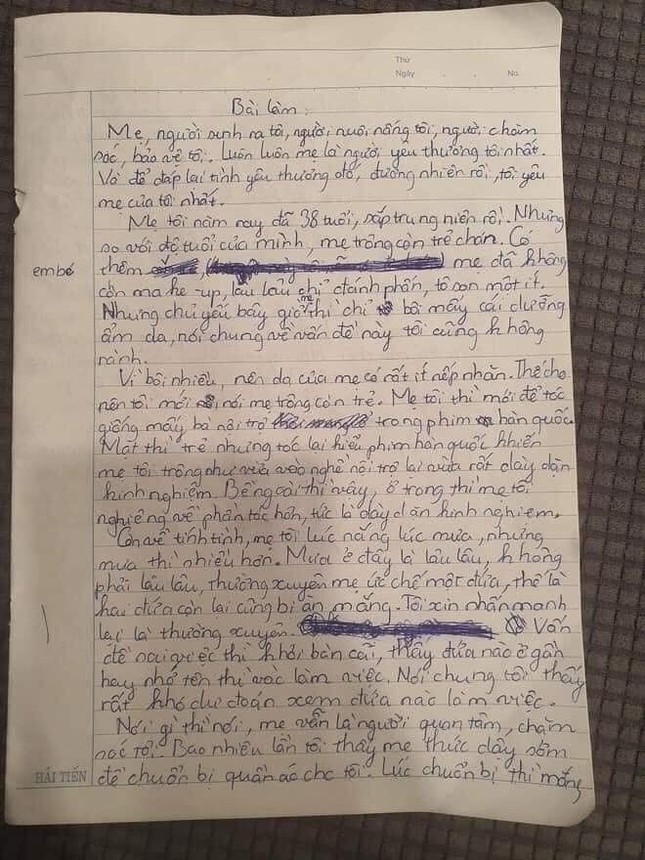 Thứ
Ngày No.
Bài làm:
Mẹ, người sinh ra tôi, người nuôi nấng tôi, người chăm
sóc, bảo vệ tôi. Luôn luôn mẹ là người yêu thương tôi nhất.
Và để đáp lại tình yêu thương đó, đương nhiên rồi, tôi yêu
mẹ của tôi nhất.
Mẹ tôi năm nay đã 38 tuổi, sắp trung niên rồi. Nhưng
so với độ tuổi của mình, mẹ trông còn trẻ chán. Có
em bé
thêm mẹ đã không
còn ma ke-up, lâu lâu chỉ đánh phấn, tô son một ít.
Nhưng chủ yếu bây giờ mẹ thì chỉ bôi mấy cái dưỡng
ẩm da, nói chung về vấn đề này tôi cũng không
rành.
Vì bôi nhiều, nên da của mẹ có rất ít nếp nhăn. Thế cho
nên tôi mới nói mẹ trông còn trẻ. Mẹ tôi thì mới để tóc
giống mấy bà nội trợ trong phim hàn quốc.
Mặt thì trẻ nhưng tóc lại kiểu phim hàn quốc khiến
mẹ tôi trông như vừa vào nghề nội trợ lại vừa rất dày dặn
kinh nghiệm. Bề ngoài thì vậy, ở trong thì mẹ tôi
nghiêng về phần tóc hơn, tức là dày dặn kinh nghiệm.
Còn về tính tình, mẹ tôi lúc nắng lúc mưa, nhưng
mưa thì nhiều hơn. Mưa ở đây là lâu lâu, không
phải lâu lâu, thường xuyên mẹ ức chế một đứa, thế là
hai đứa còn lại cũng bị ăn mắng. Tôi xin nhấn mạnh
lại là thường xuyên. Vấn
đề sai việc thì khỏi bàn cãi, thấy đứa nào ở gần
hay nhớ tên thì vác làm việc. Nói chung tôi thấy
rất khó dự đoán xem đứa nào làm việc.
Nói gì thì nói, mẹ vẫn là người quan tâm, chăm
sóc tôi. Bao nhiêu lần tôi thấy mẹ thức dậy sớm
để chuẩn bị quần áo cho tôi. Lúc chuẩn bị thì mắng
HẢI TIẾN